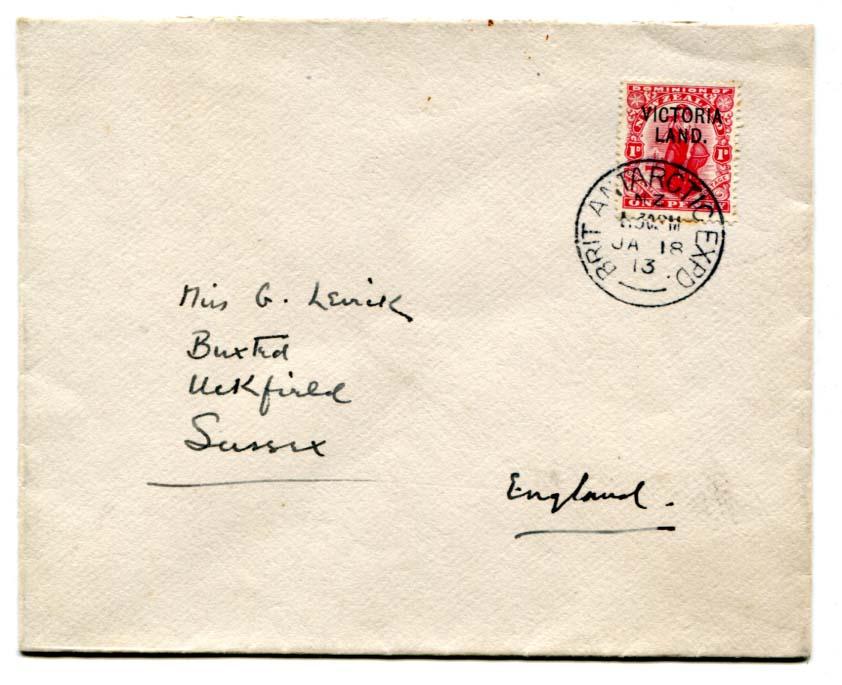 DOMINION OF
NEW ZEALAND
VICTORIA
LAND.
1D 1D
ONE PENNY
BRIT ANTARCTIC EXPD
N.Z
JA 18
13.
Miss G. Levick
Buxted
Uckfield
Sussex
England.